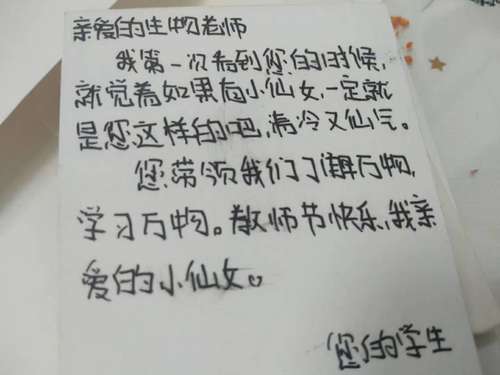 亲爱的生物老师
我第一次看到您的时候,
就觉着如果有小仙女,一定就
是您这样的吧,清冷又仙气。
您带领我们了解万物,
学习万物。教师节快乐,我亲
爱的小仙女。
您的学生